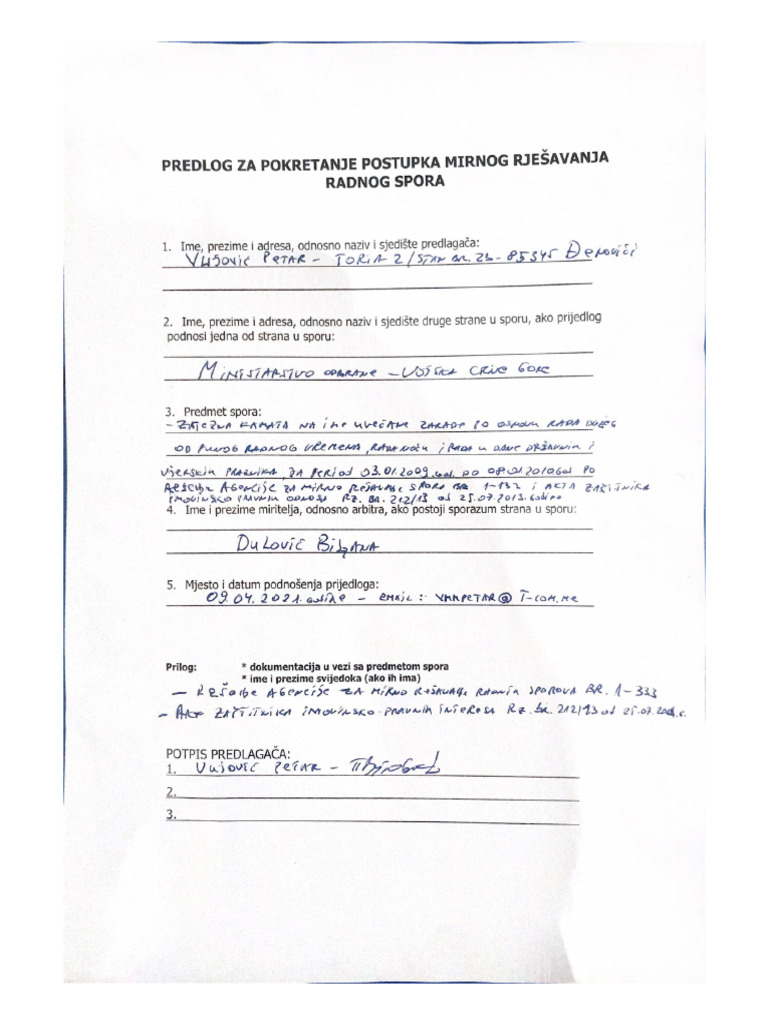 PREDLOG ZA POKRETANJE POSTUPKA MIRNOG RJEŠAVANJA
RADNOG SPORA
1. Ime, prezime i adresa, odnosno naziv i sjedište predlagača:
VUJOVIĆ PETAR - TORIA 2/STAN BR. 26 - 85345 ĐENOVIĆI
2. Ime, prezime i adresa, odnosno naziv i sjedište druge strane u sporu, ako prijedlog
podnosi jedna od strana u sporu:
MINISTARSTVO ODBRANE - VOJSKA CRNE GORE
3. Predmet spora:
- ZATEZNA KAMATA NA IME UVEĆANE ZARADE PO OSNOVU RADA DUŽEG
OD PUNOG RADNOG VREMENA, RADA NOĆU I RADA U DANE DRŽAVNIH I
VJERSKIH PRAZNIKA, ZA PERIOD 03.01.2009 GOD. DO 08.01.2010 GOD PO
REŠENJE AGENCIJE ZA MIRNO REŠAVANJE SPORA BR 1-132 I AKTA ZAŠTITNIKA
IMOVINSKO PRAVNIH ODNOSA RZ. BR. 212/13 OD 25.07.2013. GODINE
4. Ime i prezime miritelja, odnosno arbitra, ako postoji sporazum strana u sporu:
DULOVIĆ BILJANA
5. Mjesto i datum podnošenja prijedloga:
09.04.2021. GODINE - EMAIL: VMMPETAR@T-COM.ME
Prilog: * dokumentacija u vezi sa predmetom spora
* ime i prezime svijedoka (ako ih ima)
- REŠENJE AGENCIJE ZA MIRNO REŠAVANJE RADNIH SPOROVA BR. 1-333
- AKT ZAŠTITNIKA IMOVINSKO-PRAVNIH INTERESA RZ. BR. 212/13 OD 25.07.
POTPIS PREDLAGAČA:
1. VUJOVIĆ PETAR -
2.
3.